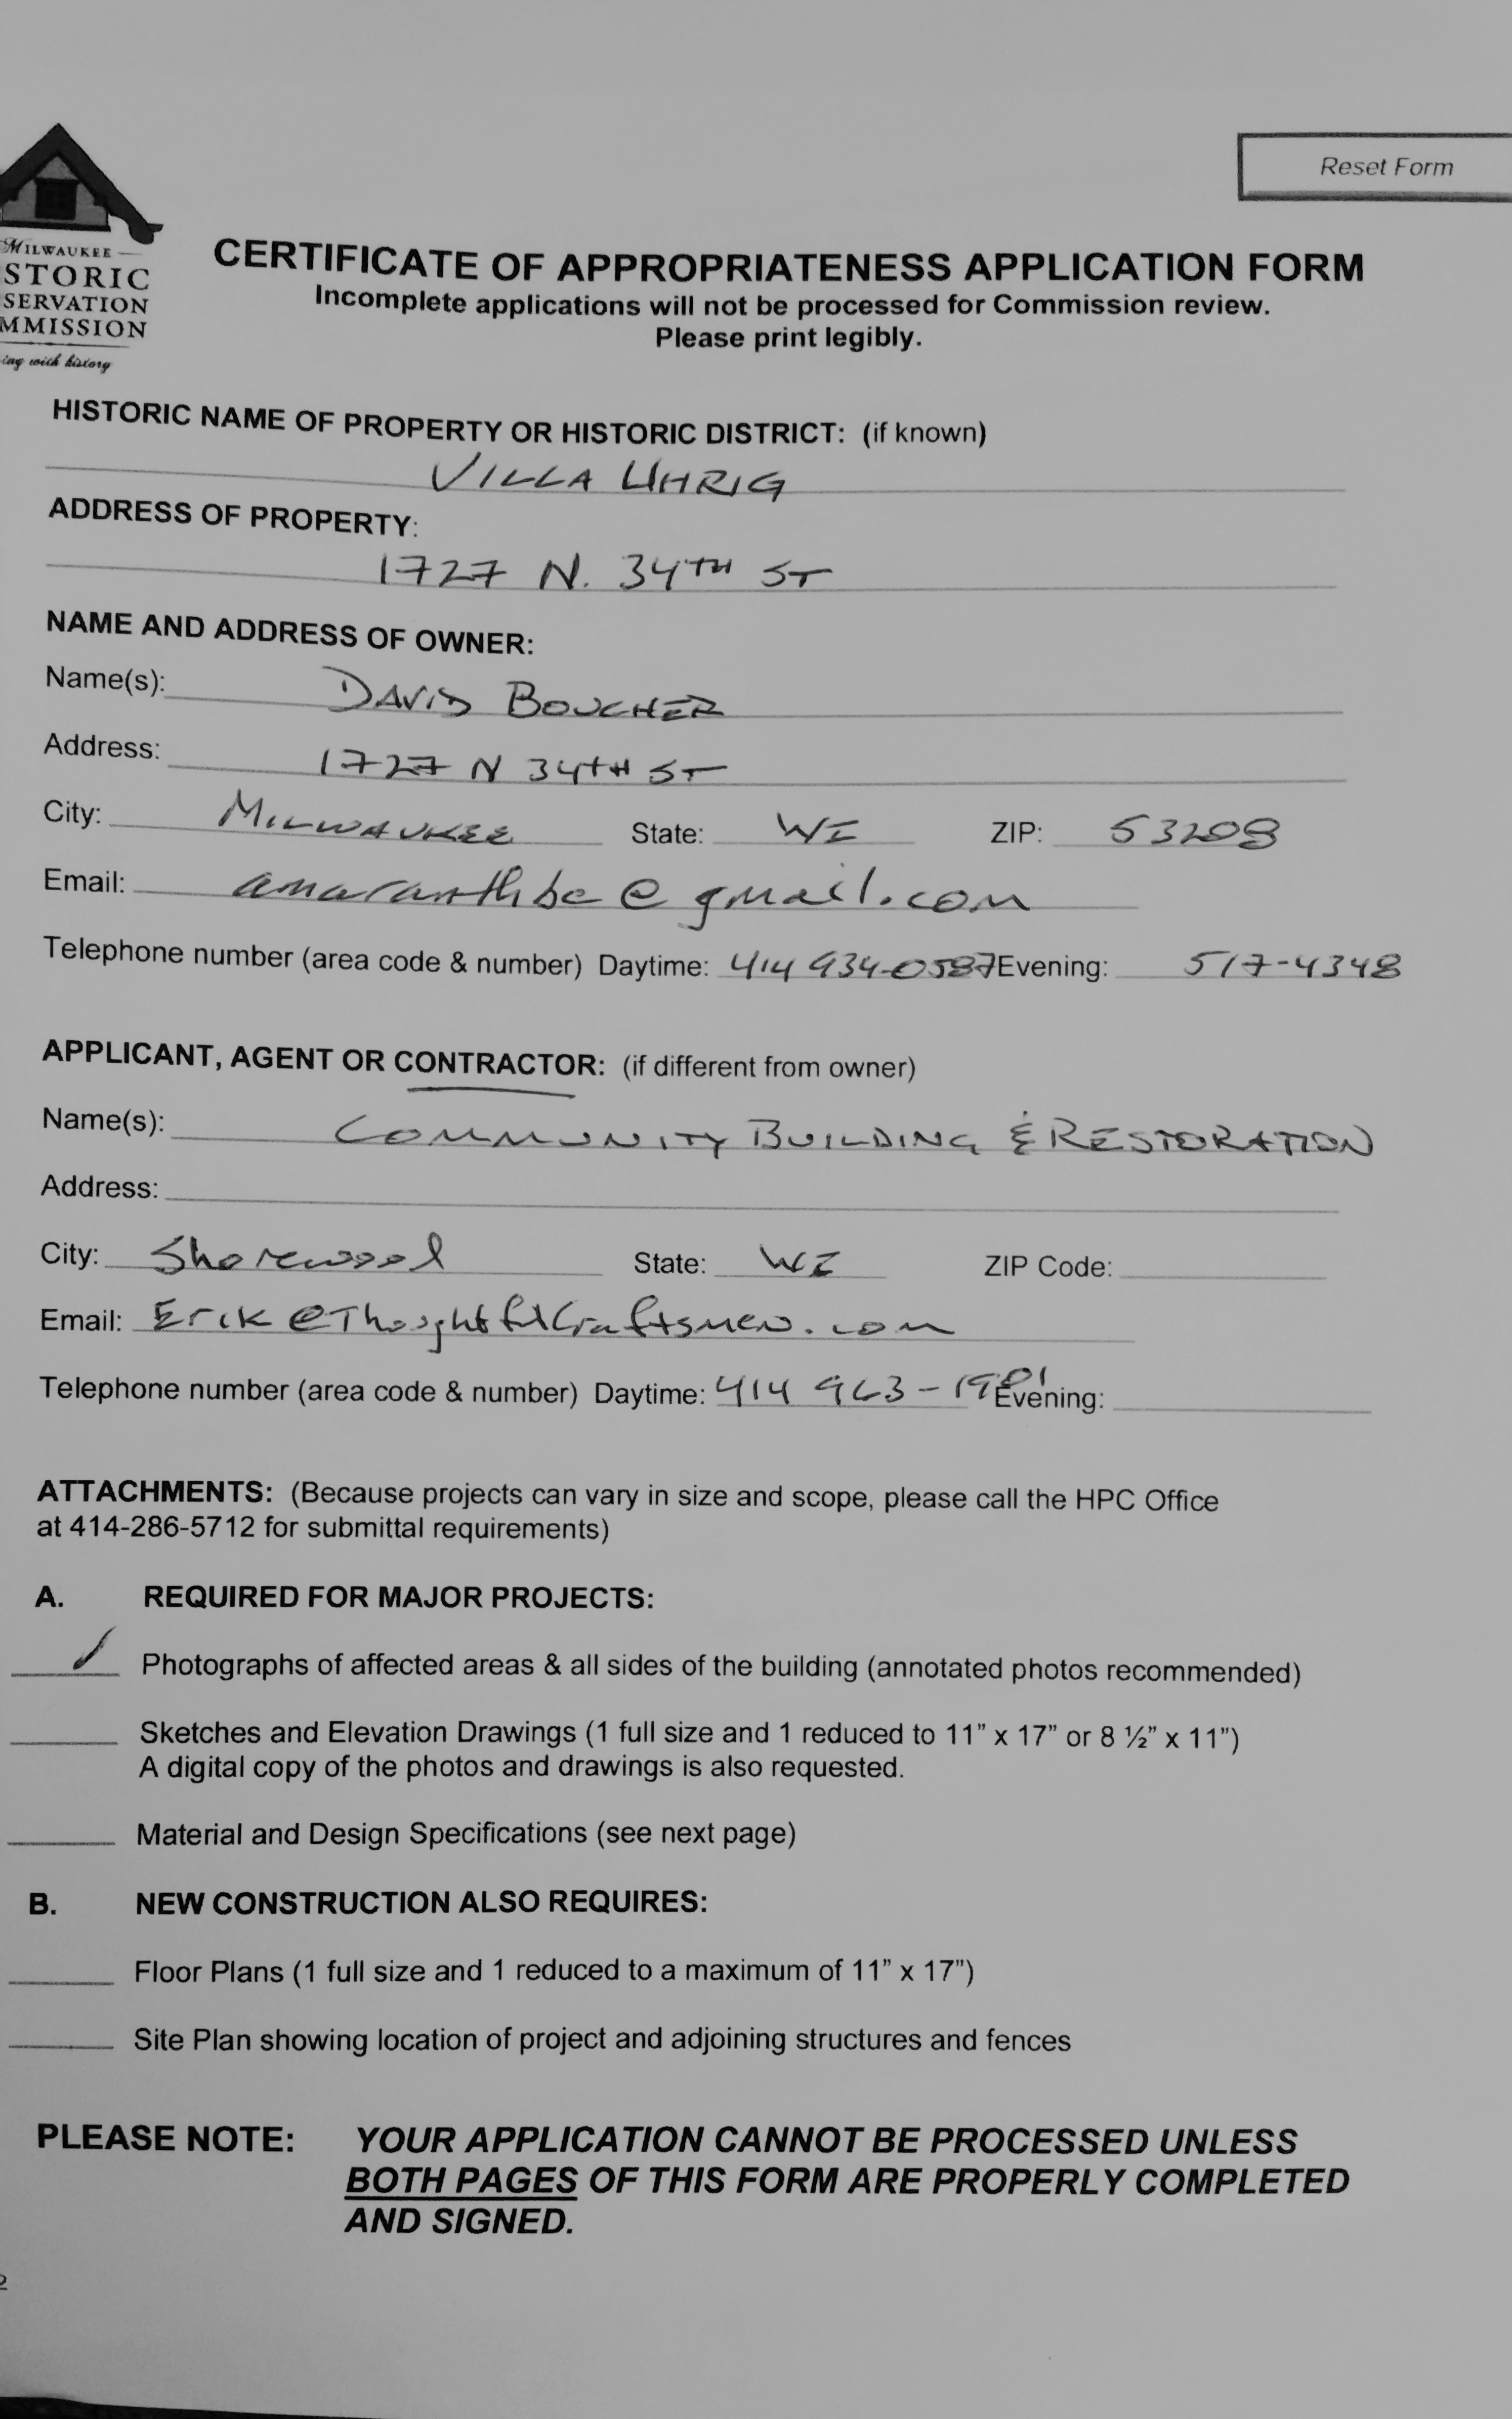 Reset Form
MILWAUKEE
STORIC
SERVATION
MMISSION
ing with history
CERTIFICATE OF APPROPRIATENESS APPLICATION FORM
Incomplete applications will not be processed for Commission review.
Please print legibly.
HISTORIC NAME OF PROPERTY OR HISTORIC DISTRICT: (if known)
VILLA UHRIG
ADDRESS OF PROPERTY:
1727 N. 34TH ST
NAME AND ADDRESS OF OWNER:
Name(s): DAVID BOUCHER
Address: 1727 N 34TH ST
City: MILWAUKEE State: WI ZIP: 53208
Email: amaranthbc@gmail.com
Telephone number (area code & number) Daytime: 414 934-0587 Evening: 517-4348
APPLICANT, AGENT OR CONTRACTOR: (if different from owner)
Name(s): COMMUNITY BUILDING & RESTORATION
Address:
City: Shorewood State: WI ZIP Code:
Email: Erik@ThoughtfulCraftsmen.com
Telephone number (area code & number) Daytime: 414 963-1901 Evening:
ATTACHMENTS: (Because projects can vary in size and scope, please call the HPC Office
at 414-286-5712 for submittal requirements)
A. REQUIRED FOR MAJOR PROJECTS:
Photographs of affected areas & all sides of the building (annotated photos recommended)
Sketches and Elevation Drawings (1 full size and 1 reduced to 11" x 17" or 8 ½" x 11")
A digital copy of the photos and drawings is also requested.
Material and Design Specifications (see next page)
B. NEW CONSTRUCTION ALSO REQUIRES:
Floor Plans (1 full size and 1 reduced to a maximum of 11" x 17")
Site Plan showing location of project and adjoining structures and fences
PLEASE NOTE: YOUR APPLICATION CANNOT BE PROCESSED UNLESS
BOTH PAGES OF THIS FORM ARE PROPERLY COMPLETED
AND SIGNED.